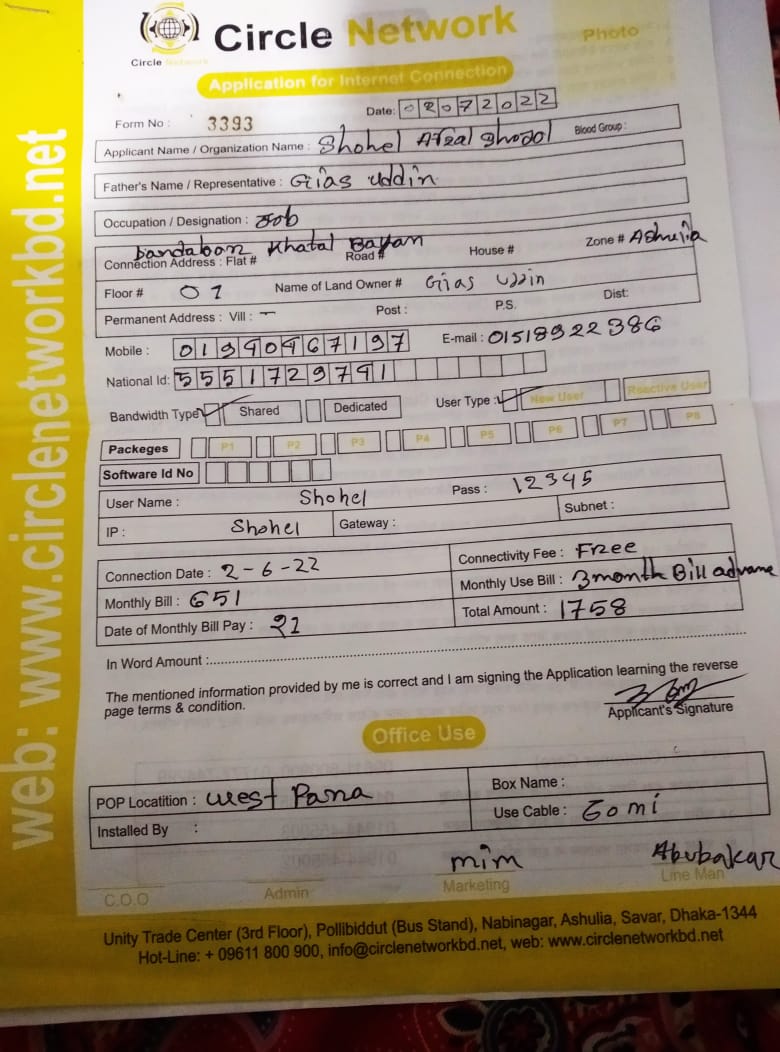 Circle Network
Circle Network
Photo
Application for Internet Connection
Form No : 3393
Date: 02072022
Applicant Name / Organization Name : Shohel Afzal
Blood Group :
Father's Name / Representative : Gias uddin
Occupation / Designation : Job
Khatal Bagan
Connection Address : Flat # Road # House # Zone # Ashulia
Floor # 01 Name of Land Owner # Gias Uddin
Permanent Address : Vill : Post : P.S. Dist:
Mobile : 01940467197 E-mail : 01518922386
National Id: 5551729791
Bandwidth Type Shared Dedicated User Type : New User Reactive User
Packeges P1 P2 P3 P4 P5 P6 P7 P8
Software Id No
User Name : Shohel Pass : 12345
IP : Shohel Gateway : Subnet :
Connection Date : 2-6-22 Connectivity Fee : Free
Monthly Bill : 651 Monthly Use Bill : 3month Bill advance
Date of Monthly Bill Pay : 21 Total Amount : 1758
In Word Amount :
The mentioned information provided by me is correct and I am signing the Application learning the reverse
page terms & condition.
Applicant's Signature
Office Use
POP Locatition : West Para Box Name :
Installed By : Use Cable : 60 mi
mim Abubakar
C.O.O Admin Marketing Line Man
Unity Trade Center (3rd Floor), Pollibiddut (Bus Stand), Nabinagar, Ashulia, Savar, Dhaka-1344
Hot-Line: + 09611 800 900, info@circlenetworkbd.net, web: www.circlenetworkbd.net
web: www.circlenetworkbd.net